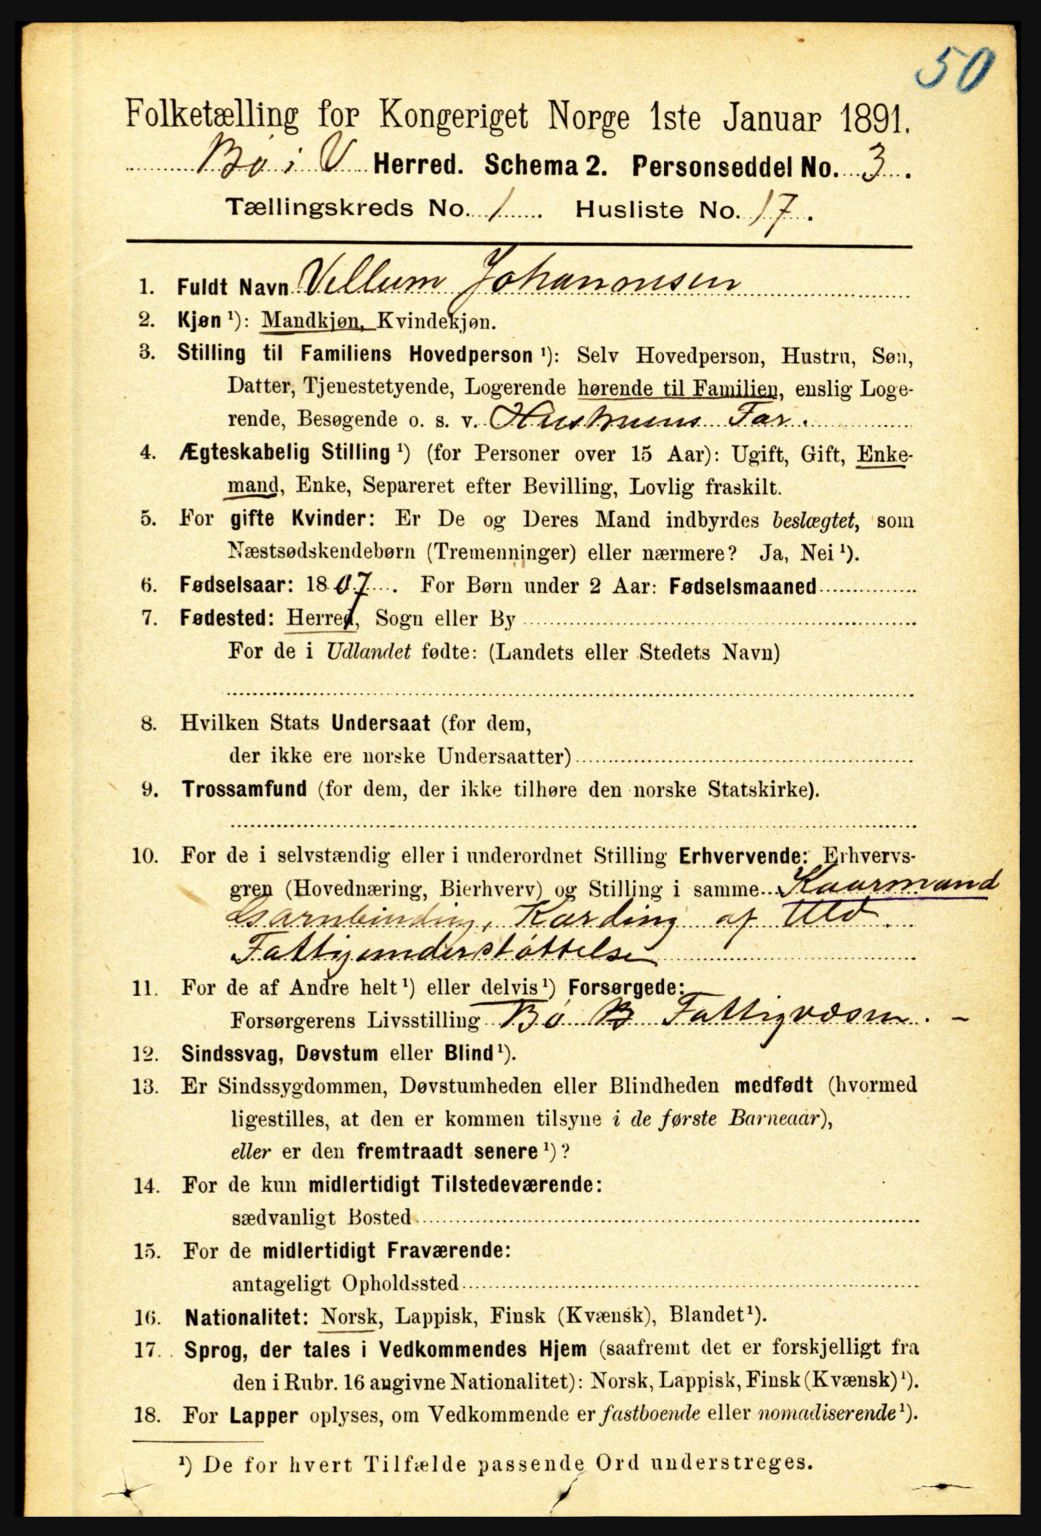 50
Folketælling for Kongeriget Norge 1ste Januar 1891.
Bø i V Herred. Schema 2. Personseddel No. 3.
Tællingskreds No. 1. Husliste No. 17.
1. Fuldt Navn Villum Johannesen
2. Kjøn ¹): Mandkjøn, Kvindekjøn.
3. Stilling til Familiens Hovedperson ¹): Selv Hovedperson, Hustru, Søn,
Datter, Tjenestetyende, Logerende hørende til Familien, enslig Loge-
rende, Besøgende o. s. v. Hustruens Far.
4. Ægteskabelig Stilling ¹) (for Personer over 15 Aar): Ugift, Gift, Enke-
mand, Enke, Separeret efter Bevilling, Lovlig fraskilt.
5. For gifte Kvinder: Er De og Deres Mand indbyrdes beslægtet, som
Næstsødskendebørn (Tremenninger) eller nærmere? Ja, Nei ¹).
6. Fødselsaar: 1807. For Børn under 2 Aar: Fødselsmaaned
7. Fødested: Herred, Sogn eller By
For de i Udlandet fødte: (Landets eller Stedets Navn)
8. Hvilken Stats Undersaat (for dem,
der ikke ere norske Undersaatter)
9. Trossamfund (for dem, der ikke tilhøre den norske Statskirke).
10. For de i selvstændig eller i underordnet Stilling Erhvervende: Erhvervs-
gren (Hovednæring, Bierhverv) og Stilling i samme Kaarmand
Garnbinding, Karding af Uld.
Fattigunderstøttelse
11. For de af Andre helt ¹) eller delvis ¹) Forsørgede:
Forsørgerens Livsstilling Bø Fattigvæsen. –
12. Sindssvag, Døvstum eller Blind ¹).
13. Er Sindssygdommen, Døvstumheden eller Blindheden medfødt (hvormed
ligestilles, at den er kommen tilsyne i de første Barneaar),
eller er den fremtraadt senere ¹)?
14. For de kun midlertidigt Tilstedeværende:
sædvanligt Bosted
15. For de midlertidigt Fraværende:
antageligt Opholdssted
16. Nationalitet: Norsk, Lappisk, Finsk (Kvænsk), Blandet ¹).
17. Sprog, der tales i Vedkommendes Hjem (saafremt det er forskjelligt fra
den i Rubr. 16 angivne Nationalitet): Norsk, Lappisk, Finsk (Kvænsk) ¹).
18. For Lapper oplyses, om Vedkommende er fastboende eller nomadiserende ¹).
¹) De for hvert Tilfælde passende Ord understreges.